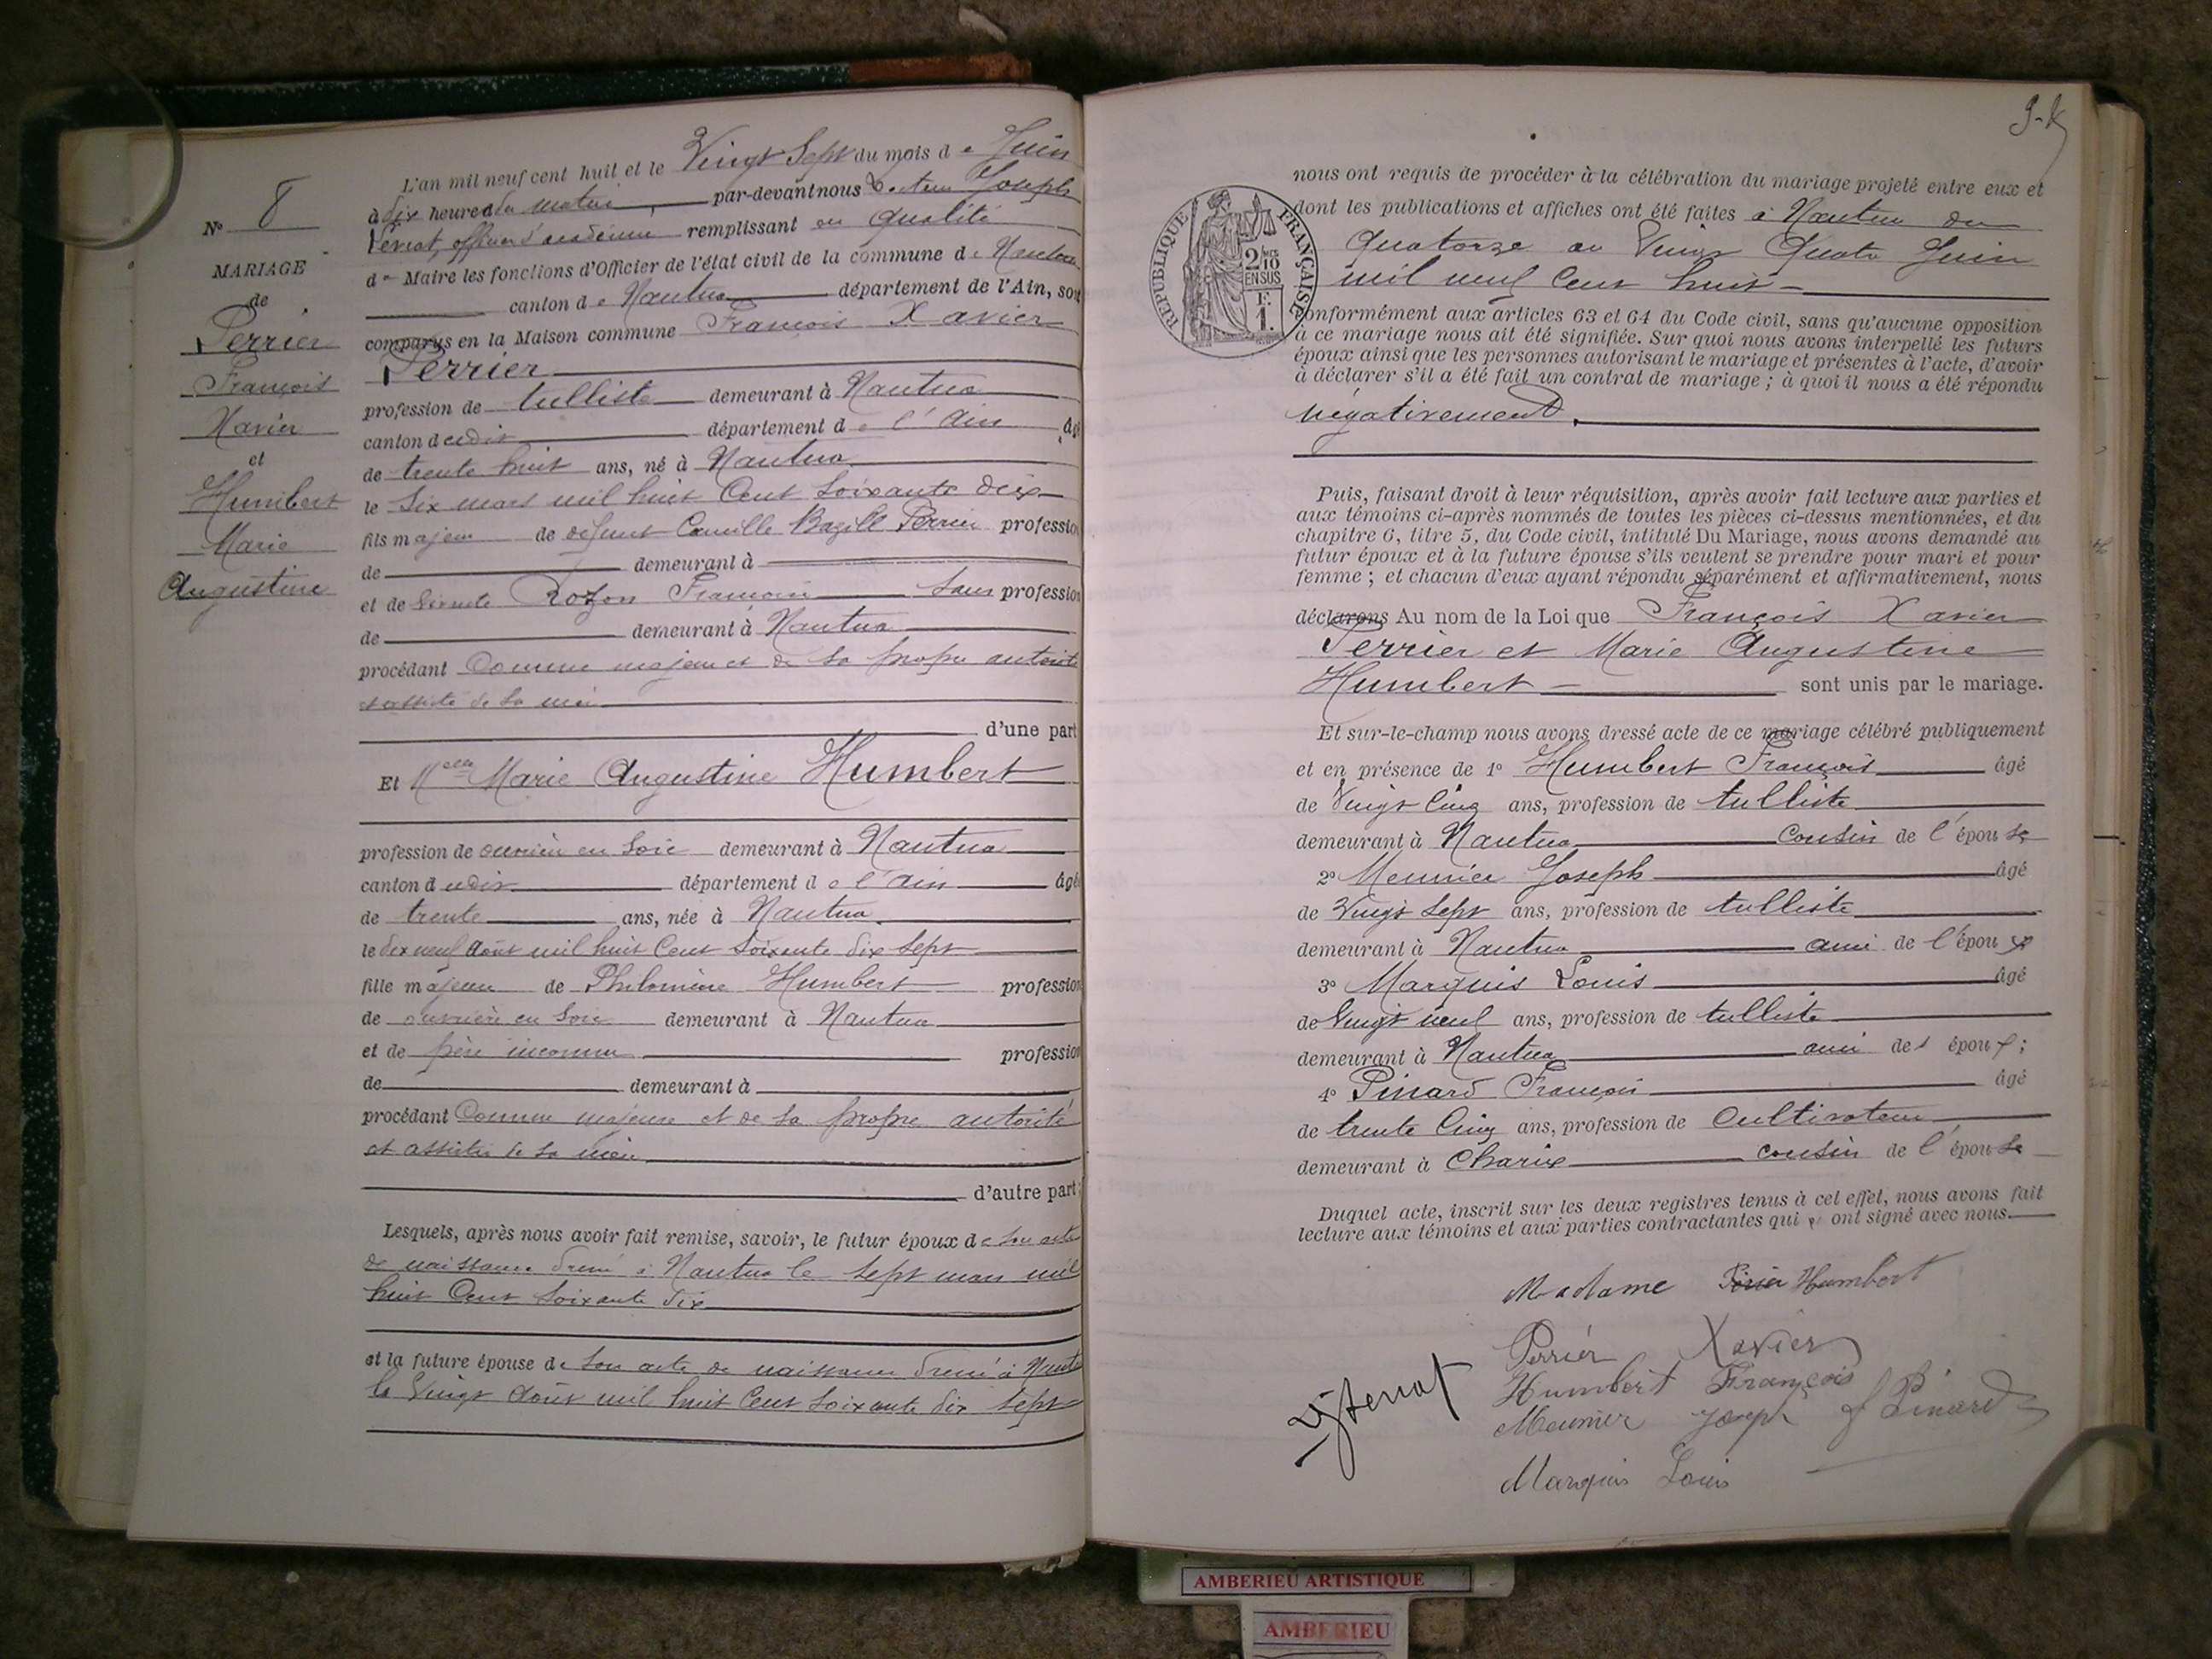 N° 8
MARIAGE
de
Perrier
François
Xavier
et
Humbert
Marie
Augustine
L'an mil neuf cent huit et le Vingt Sept du mois de Juin
à dix heures du matin par-devant nous Joseph
officier d'académie remplissant en qualité
de Maire les fonctions d'Officier de l'état civil de la commune de Nantua
canton de Nantua département de l'Ain, sont
comparus en la Maison commune François Xavier
Perrier
profession de tulliste demeurant à Nantua
canton dudit département de l'Ain âgé
de trente huit ans, né à Nantua
le Six mars mil huit Cent Soixante dix
fils majeur de défunt Camille Bazille Perrier profession
de demeurant à
et de vivante Rozon Françoise Sans profession
de demeurant à Nantua
procédant Comme majeur et de sa propre autorité
et assisté de sa mère
d'une part
Et Melle Marie Augustine Humbert
profession de ouvrière en Soie demeurant à Nantua
canton dudit département de l'Ain âgée
de trente ans, née à Nantua
le dix neuf Août mil huit Cent Soixante dix Sept
fille majeure de Philomène Humbert profession
de ouvrière en Soie demeurant à Nantua
et de père inconnu profession
de demeurant à
procédant Comme majeure et de sa propre autorité
et assistée de sa mère
d'autre part;
Lesquels, après nous avoir fait remise, savoir, le futur époux de Son acte
de naissance dressé à Nantua le Sept mars mil
huit Cent Soixante dix
et la future épouse de Son acte de naissance dressé à Nantua
le Vingt Août mil huit Cent Soixante dix Sept
nous ont requis de procéder à la célébration du mariage projeté entre eux et
dont les publications et affiches ont été faites à Nantua du
Quatorze au Vingt Quatre Juin
mil neuf Cent huit
RÉPUBLIQUE FRANÇAISE
2/10
EN SUS
F.
1.
Conformément aux articles 63 et 64 du Code civil, sans qu'aucune opposition
à ce mariage nous ait été signifiée. Sur quoi nous avons interpellé les futurs
époux ainsi que les personnes autorisant le mariage et présentes à l'acte, d'avoir
à déclarer s'il a été fait un contrat de mariage ; à quoi il nous a été répondu
négativement.
Puis, faisant droit à leur réquisition, après avoir fait lecture aux parties et
aux témoins ci-après nommés de toutes les pièces ci-dessus mentionnées, et du
chapitre 6, titre 5, du Code civil, intitulé Du Mariage, nous avons demandé au
futur époux et à la future épouse s'ils veulent se prendre pour mari et pour
femme ; et chacun d'eux ayant répondu séparément et affirmativement, nous
déclarons Au nom de la Loi que François Xavier
Perrier et Marie Augustine
Humbert sont unis par le mariage.
Et sur-le-champ nous avons dressé acte de ce mariage célébré publiquement
et en présence de 1° Humbert François âgé
de Vingt Cinq ans, profession de tulliste
demeurant à Nantua Cousin de l'épouse
2° Meunier Joseph âgé
de Vingt Sept ans, profession de tulliste
demeurant à Nantua ami de l'époux
3° Marquis Louis âgé
de Vingt neuf ans, profession de tulliste
demeurant à Nantua ami des époux;
4° Pinard François âgé
de trente Cinq ans, profession de Cultivateur
demeurant à Charix cousin de l'épouse
Duquel acte, inscrit sur les deux registres tenus à cet effet, nous avons fait
lecture aux témoins et aux parties contractantes qui ont signé avec nous.
Madame Humbert
Perrier Xavier
Humbert François
Meunier Joseph f Pinard
Marquis Louis
AMBERIEU ARTISTIQUE
AMBERIEU